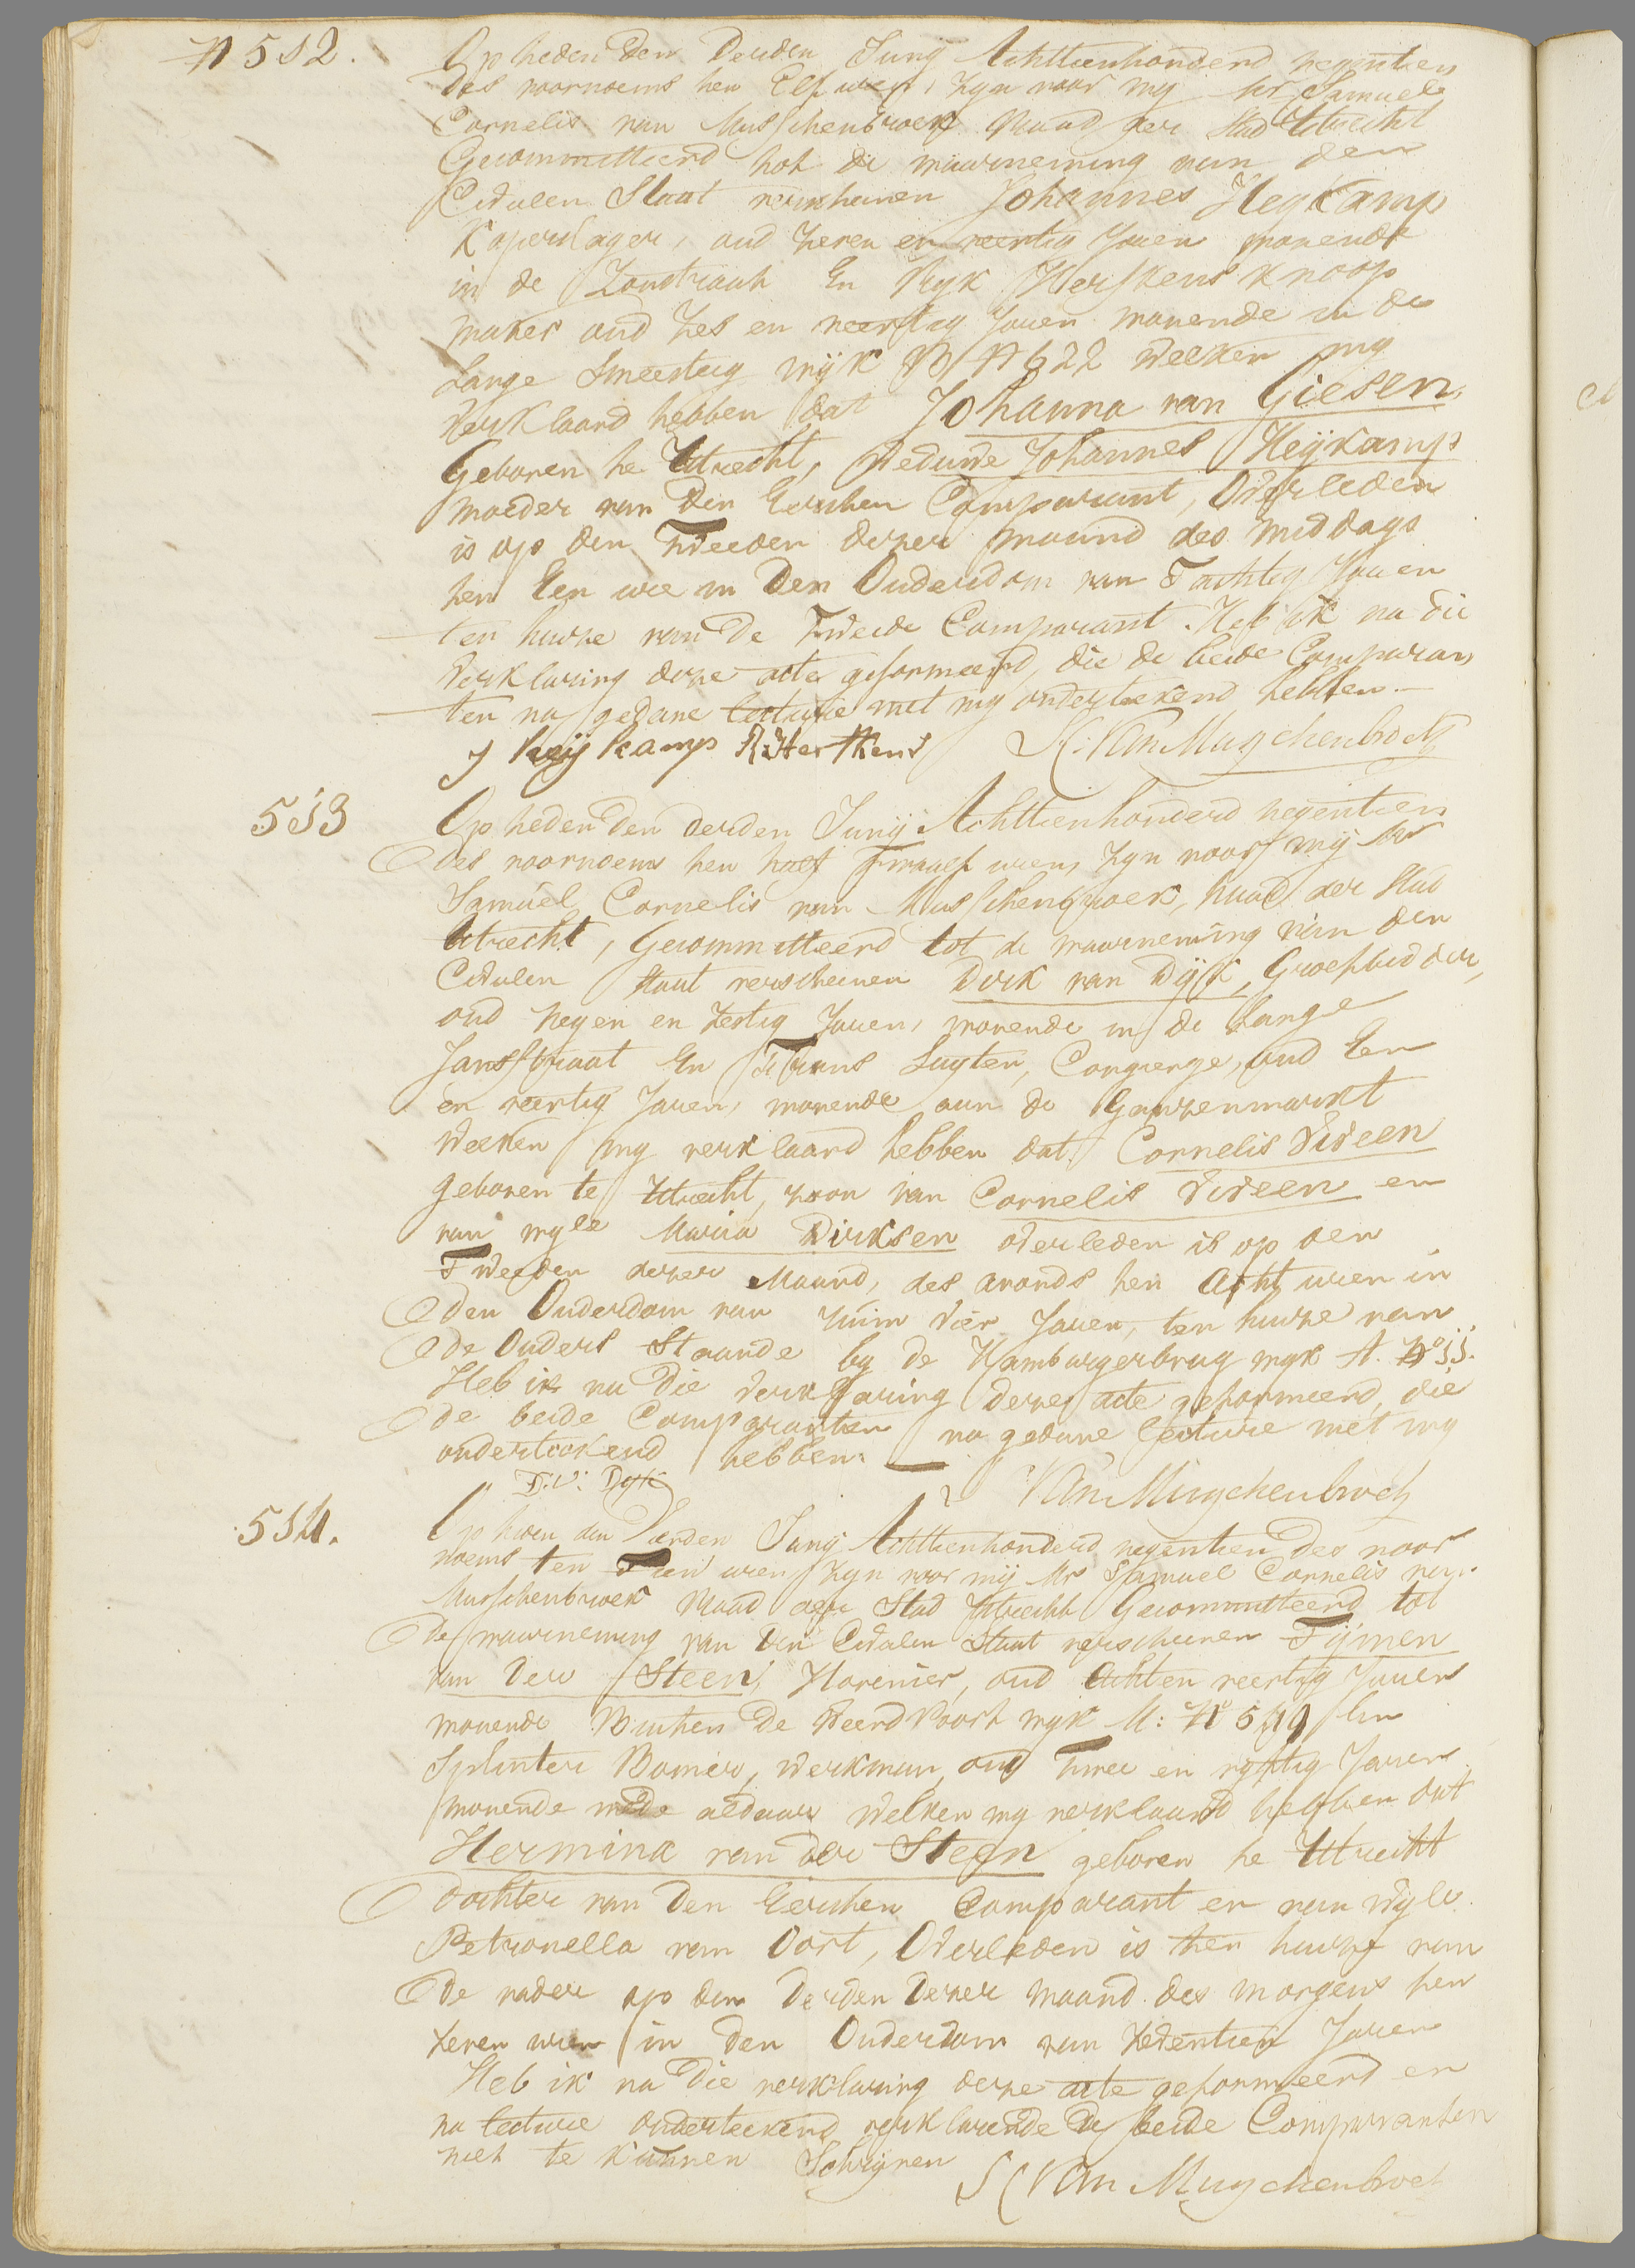 N 512.
Op heden den Derden Junij Achttienhonderd negentien
des voornoens ten Elf uren, zyn voor my Mr Samuel
Cornelis van Musschenbroek Raad der Stad Utrecht
Gecommitteerd tot de waarneming van den
Civielen Staat verschenen Johannes Heykamp
Koperslager, oud zeven en veertig Jaren wonende
in de Zandstraat En Ryk Herfkens knoop
maker oud Zes en veertig Jaren wonende in de
Lange Smeesteeg wijk B N 622 welken my
Verklaard hebben dat Johanna van Giesen,
Geboren te Utrecht, Weduwe Johannes Heijkamp
moeder van den Eersten Comparant, Overleden
is op den Tweeden dezer maand des middags
ten Een ure in Den Ouderdom van Tachtig Jaren
ten huize van De Tweede Comparant. Heb ik na die
Verklaring deze acte geformeerd, die de beide Comparan
ten na gedane lecture met my onderteekend hebben.
J heij kamp R Herfkens S C. Van Musschenbroek
513
Op heden den derden Junij Achttienhonderd negentien
des voornoens ten half Twaalf uren, zyn voor mij Mr
Samuel Cornelis van Musschenbroek, Raad der Stad
Utrecht, Gecommitteerd tot de waarneming van den
Civielen Staat verschenen Dirk van Dijk, Groefbidder,
oud negen en zestig Jaren, wonende in de Lange
Jansstraat En Frans Luyten, Congierge, oud Een
en veertig Jaren, wonende aan de Ganzenmarkt
Welken my verklaard hebben dat Cornelis Vireen
geboren te Utrecht, zoon van Cornelis Vireen en
van wyle Maria Dirksen overleden is op den
Tweeden dezer Maand, des avonds ten Acht uren in
den Ouderdom van ruim vier Jaren, ten huize van
de Ouders Staande by de Hamburgerbrug wyk A. No 55.
Heb ik na die verklaring deze acte geformeerd, die
de beide Comparanten na gedane lecture met my
onderteekend hebben.
D: V: Dyk Van Musschenbroek
514.
Op heden den Derden Junij Achttienhonderd negentien Des voor
noens ten Tien uren zyn voor mij Mr Samuel Cornelis van
Musschenbroek Raad der Stad Utrecht Gecommitteerd tot
de waarneming van Den Civielen Staat verschenen Tijmen
van Der Steen, Hovenier, oud Acht en veertig Jaren
wonende Buiten De Weerd Poort wyk M: No En
Splinter Bomer, werkman, oud Twee en vyftig Jaren
wonende mede aldaar welken my verklaard hebben dat
Hermina van der Steen geboren te Utrecht
dochter van Den Eersten Comparant en van wyle
Petronella van Oort, Overleden is ten huize van
de vader op den Derden Dezer maand des morgens ten
zeven uren in Den Ouderdom van Zeventien Jaren
Heb ik na Die verklaring deze acte geformeerd en
na lecture onderteekend verklarende De beide Comparanten
niet te kunnen Schrijven S C Van Musschenbroek